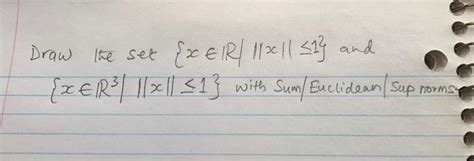 Draw the set {x ∈ ℝ | ||x|| ≤ 1} and
{x ∈ ℝ³ | ||x|| ≤ 1} with Sum/Euclidean/Sup norms.